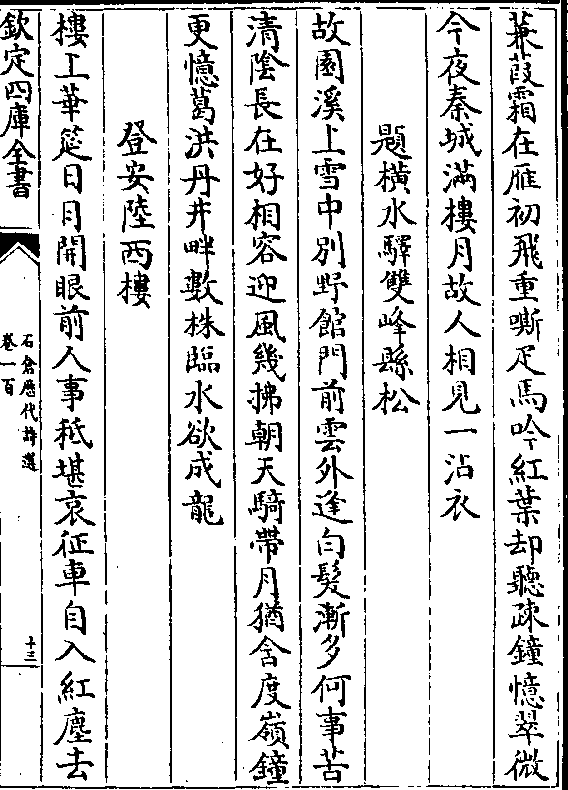 蒹葭霜在雁初飛重嘶疋馬吟紅葉却聽疎鐘憶翠微
今夜秦城滿樓月故人相見一沾衣
題橫水驛雙峰縣松
故園溪上雪中別野館門前雲外逢白髮漸多何事苦
清陰長在好相容迎風幾拂朝天騎帶月猶含度嶺鐘
更憶葛洪丹井畔數株臨水欲成龍
登安陸西樓
樓上華筵日月開眼前人事秪堪哀征車自入紅塵去
欽定四庫全書
石倉歷代詩選
卷一百
十三